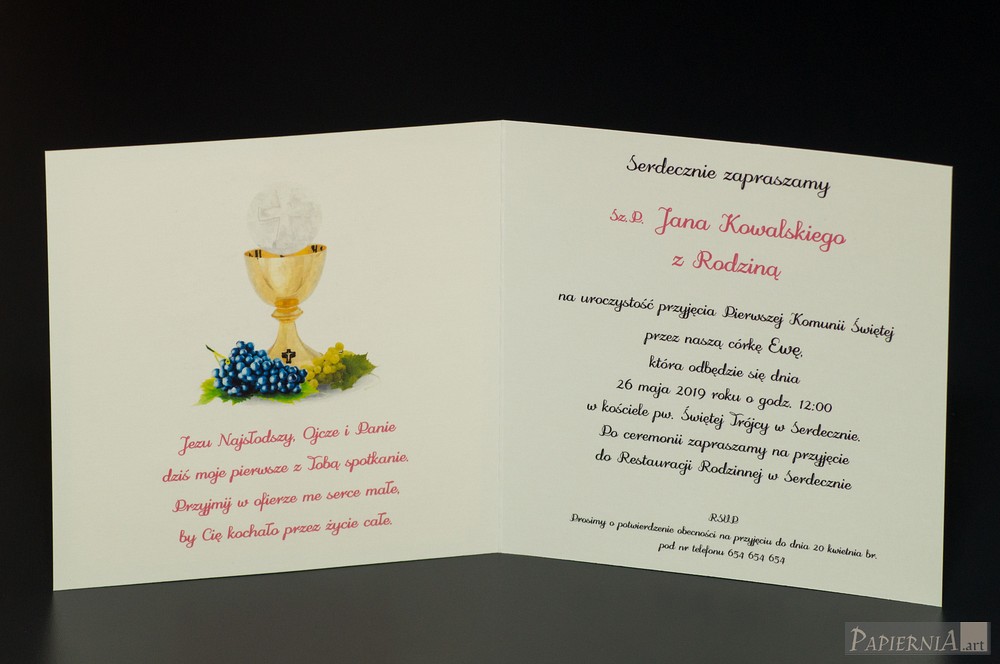 Jezu Najsłodszy, Ojcze i Panie
dziś moje pierwsze z Tobą spotkanie.
Przyjmij w ofierze me serce małe,
by Cię kochało przez życie całe.
Serdecznie zapraszamy
Sz.P. Jana Kowalskiego
z Rodziną
na uroczystość przyjęcia Pierwszej Komunii Świętej
przez naszą córkę Ewę,
która odbędzie się dnia
26 maja 2019 roku o godz. 12:00
w kościele pw. Świętej Trójcy w Serdecznie.
Po ceremonii zapraszamy na przyjęcie
do Restauracji Rodzinnej w Serdecznie
RSVP
Prosimy o potwierdzenie obecności na przyjęciu do dnia 20 kwietnia br.
pod nr telefonu 654 654 654
PAPIERNIA.art